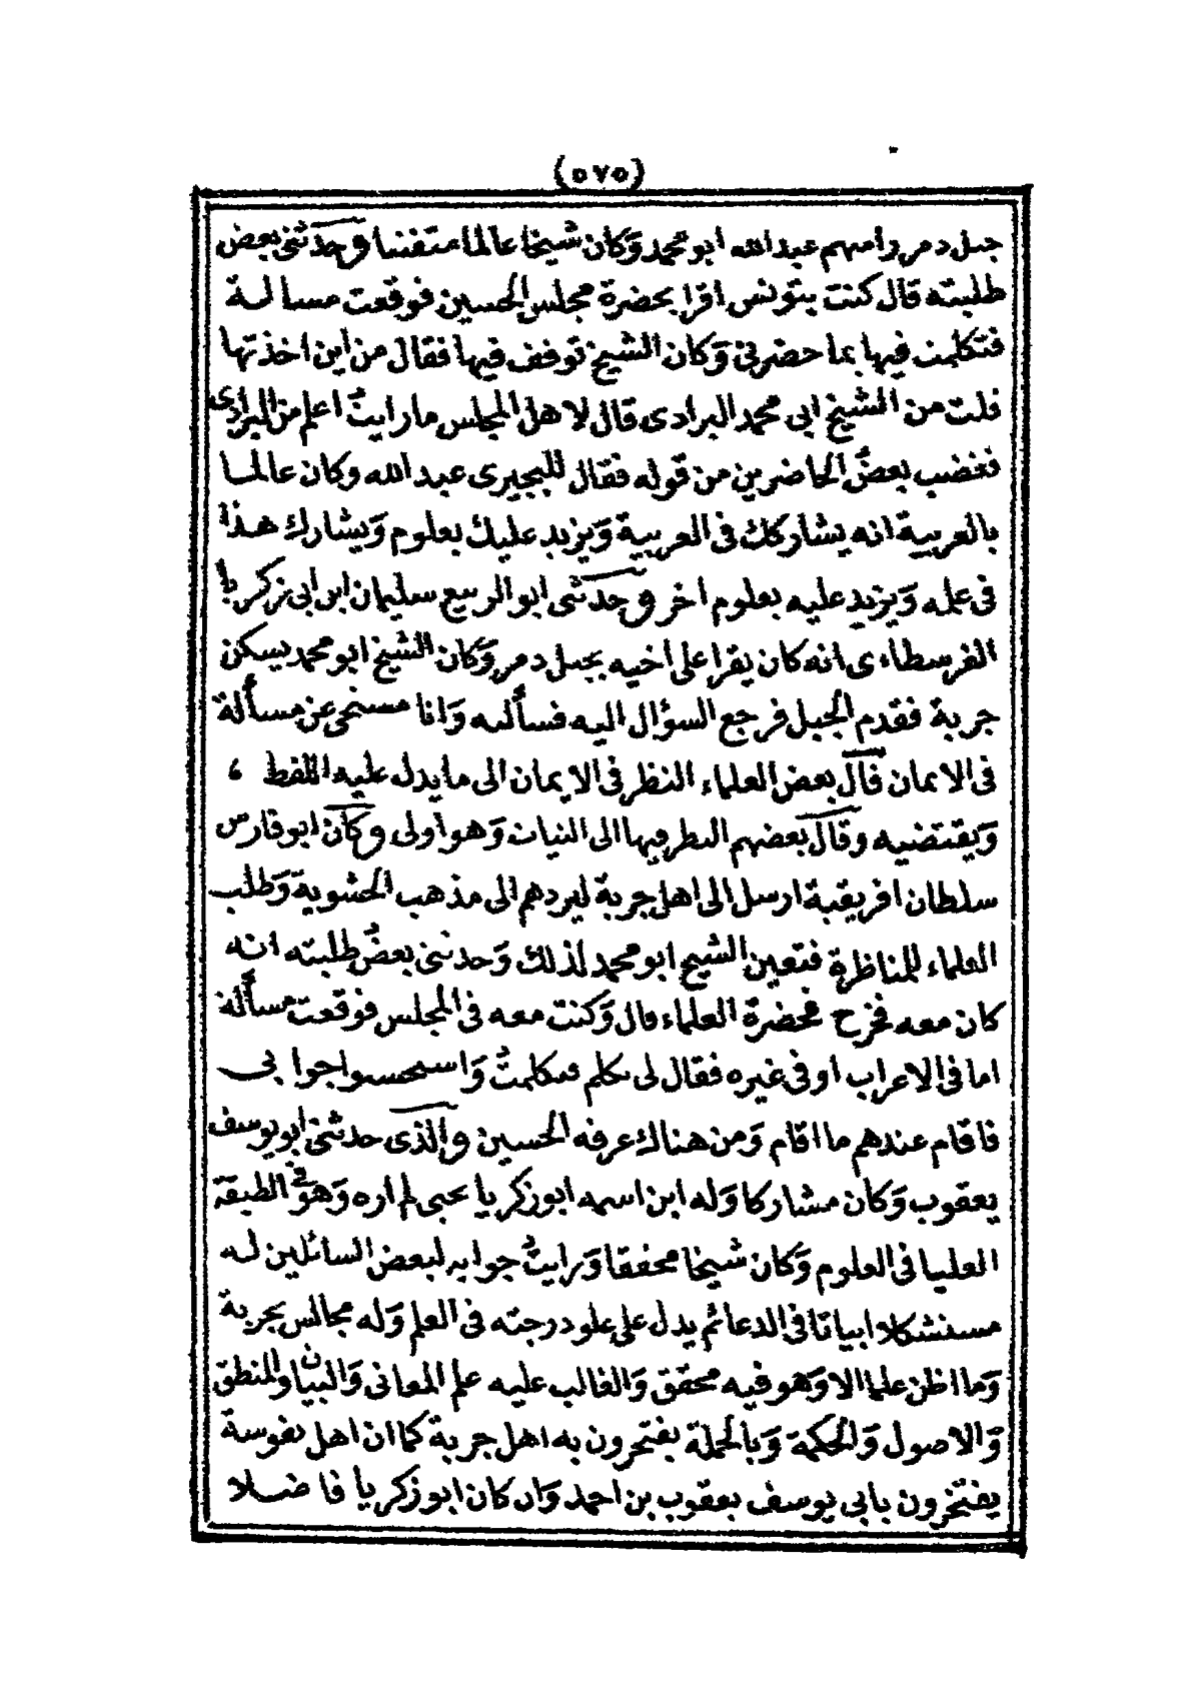 (٥٧٥)
جبل دمر وامهم عبد الله ابو محمد وَكان شيخا عالما متفننا وحدثنى بعض
طلبته قال كنت بتونس اقرا بحضرة مجلس الحسين فوقعت مسالة
فتكلمت فيها بما حضرنى وَكان الشيخ توقف فيها فقال من اين اخذتها
قلت من الشيخ ابى محمد البرادى قال لاهل المجلس ما رايتُ اعلم من البرادى
فغضب بعضُ الحاضرين من قوله فقال للبجيرى عبد الله وكان عالما
بالعربية انه يشاركك فى العربية وَيزيد عليك بعلوم وَيشارك هذا
فى علمه وَيزيد عليه بعلوم اخر وحدثنى ابو الربيع سليمان ابن ابى زكريا
الفرسطاءى انه كان يقرا على اخيه بجبل دمر وَكان الشيخ ابو محمد يسكن
جربة فقدم الجبل فرجع السؤال اليه فسألته وَانا مستحى عن مسألة
فى الايمان قال بعض العلماء النظر فى الايمان الى ما يدل عليه اللفظ ،
وَيقتضيه وقال بعضهم النظر فيها الى النيات وَهو أولى وكان ابو فارس
سلطان افريقية ارسل الى اهل جربة ليردهم الى مذهب الحشوية وَطلب
العلماء للمناظرة فتعين الشيخ ابو محمد لذلك وَحدثنى بعضُ طلبته انه
كان معه فخرج فحضرهُ العلماء قال وَكنت معه فى المجلس فوقعت مسألة
اما فى الاعراب او فى غيره فقال لى تكلم فتكلمتُ وَاستحسنوا جوابى
فاقام عندهم ما اقام وَمن هناك عرفه الحسين والذى حدثنى ابو يوسف
يعقوب وَكان مشاركا وَله ابن اسمه ابو زكريا يحيى لم اره وَهو فى الطبقة
العليا فى العلوم وَكان شيخا محققا وَرايتُ جوابه لبعض السائلين له
مستشكلا ابياتا فى الدعائم يدل على علو درجته فى العلم وَله مجالس بجربة
وَما اظن علما الا وَهو فيه محقق وَالغالب عليه علم المعانى وَالبيان والمنطق
وَالاصول وَالحكمة وَبالجملة يفتخرون به اهل جربة كما ان اهل نفوسة
يفتخرون بابى يوسف يعقوب بن احمد وَان كان ابو زكريا فاضلا